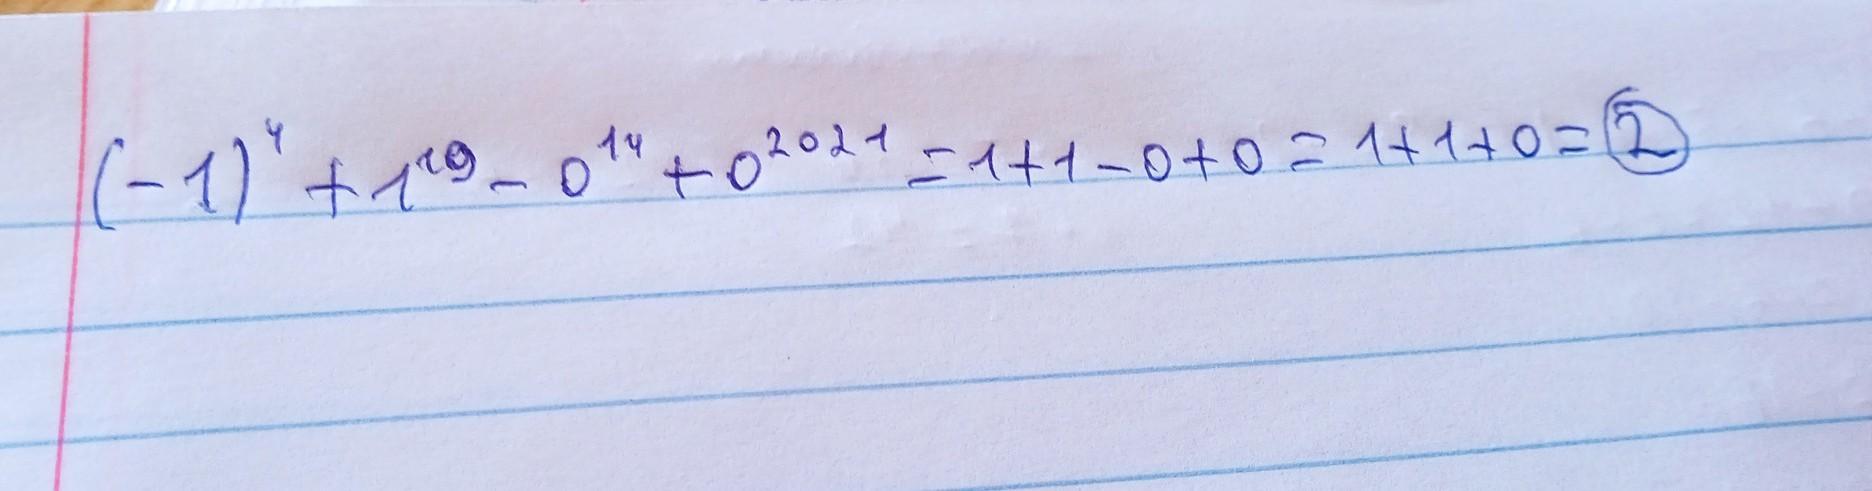 (-1)⁴ + 1¹⁹ - 0¹⁴ + 0²⁰²¹ = 1+1-0+0 = 1+1+0 = 2